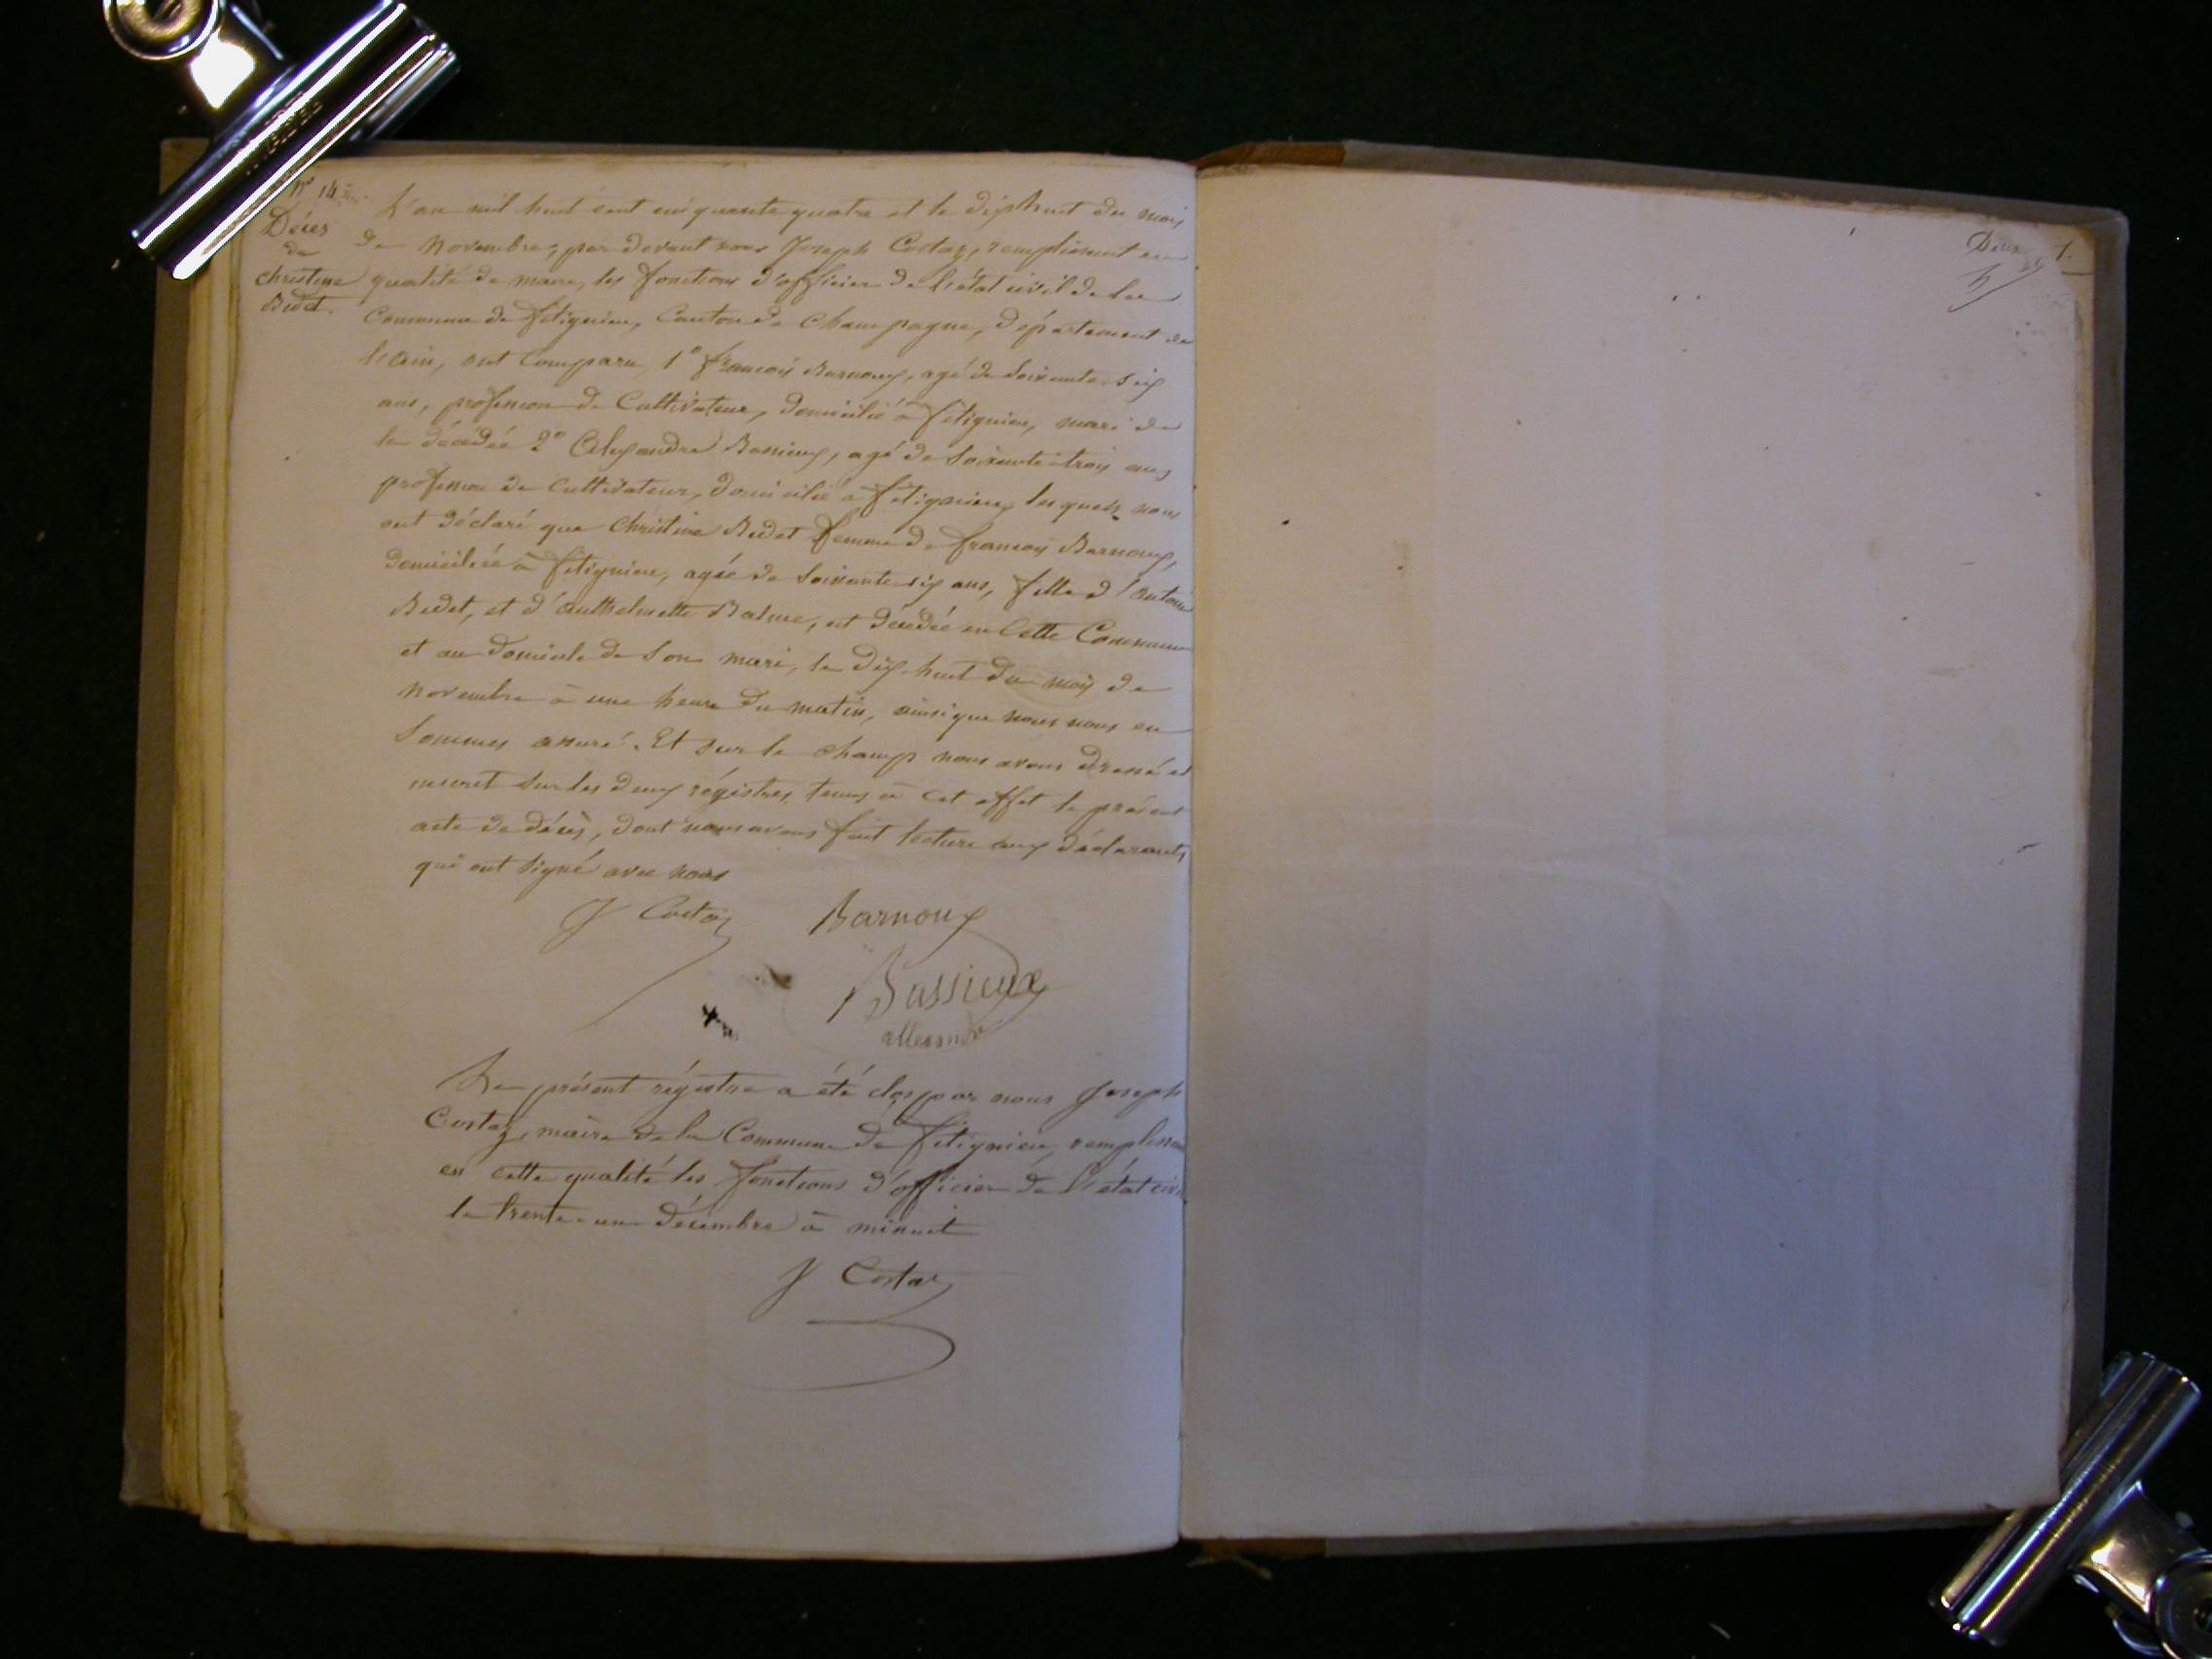 N° 14
Décès
de
Christine
Budet.
L'an mil huit cent cinquante quatre et le dix huit du mois
de Novembre, par devant nous Joseph Costaz, remplissant en
qualité de maire, les fonctions d'officier de l'état civil de la
Commune de fitignieu, Canton de Champagne, département de
l'ain, ont comparu 1° françois Barnoux, agé de soixante six
ans, profession de Cultivateur, domicilié à fitignieu, mari de
la décédée 2° Alexandre Bassieux, agé de soixante trois ans
profession de cultivateur, domicilié à fitignieu, lesquels nous
ont déclaré que Christine Budet femme de françois Barnoux,
domiciliée à fitignieu, agée de soixante six ans, fille d'Antoine
Budet, et d'Anthelmette Balme, est décédée en Cette Commune
et au domicile de son mari, le dix huit du mois de
Novembre à une heure du matin, ainsi que nous nous en
sommes assuré. Et sur le champ nous avons dressé et
inscrit sur les deux régistres tenus à cet effet le présent
acte de décès, dont nous avons fait lecture aux déclarants
qui ont signé avec nous
J Costaz Barnoux
Bassieux
allexandre
Le présent régistre a été clos par nous Joseph
Costaz, maire de la Commune de fitignieu, remplissant
en cette qualité les fonctions d'officier de l'état civil
le trente-un décembre à minuit
J Costaz